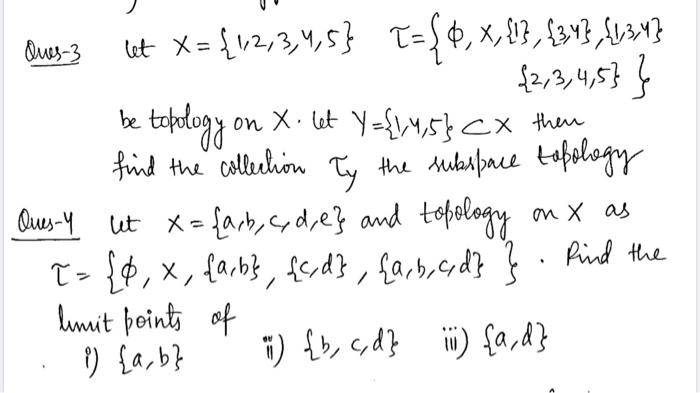 Ques-3 let X = {1,2,3,4,5} τ = {ϕ, X, {1}, {3,4}, {1,3,4}
{2,3,4,5} }
be topology on X. let Y={1,4,5} ⊂ X then
find the collection τy the subspace topology
Ques-4 let X = {a,b,c,d,e} and topology on X as
τ = {ϕ, X, {a,b}, {c,d}, {a,b,c,d} }. Find the
limit points of
i) {a,b} ii) {b,c,d} iii) {a,d}